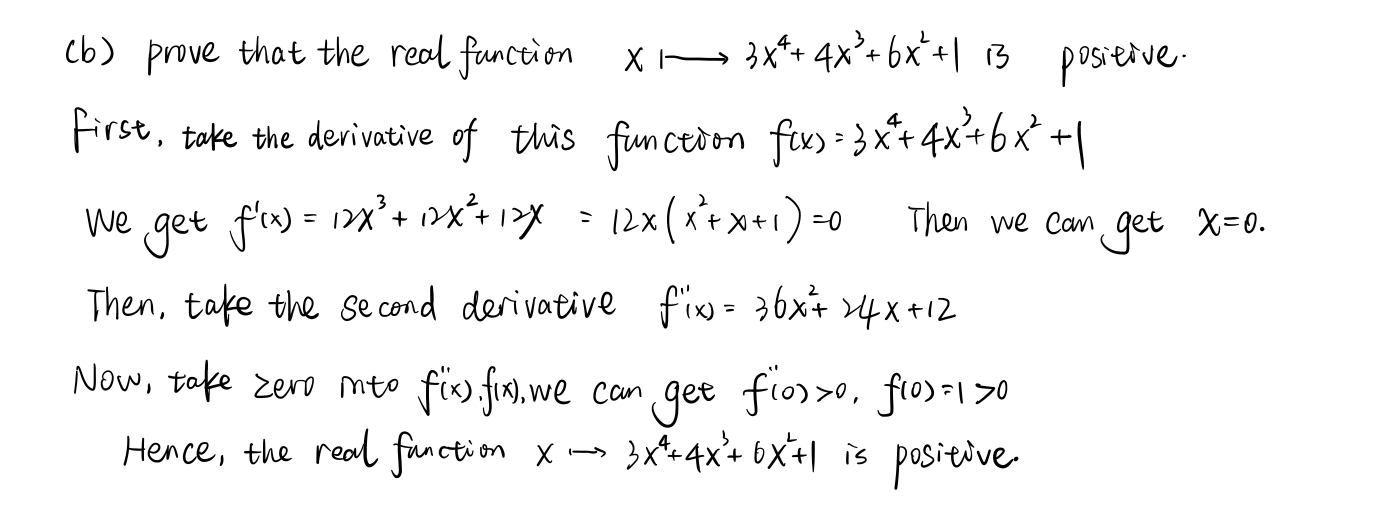 (b) prove that the real function x ⟼ 3x⁴+4x³+6x²+1 is positive.
First, take the derivative of this function f(x)=3x⁴+4x³+6x²+1
We get f'(x) = 12x³+12x²+12x = 12x(x²+x+1)=0 Then we can get x=0.
Then, take the second derivative f''(x) = 36x²+24x+12
Now, take zero into f''(x),f(x),we can get f''(0)>0, f(0)=1>0
Hence, the real function x → 3x⁴+4x³+6x²+1 is positive.